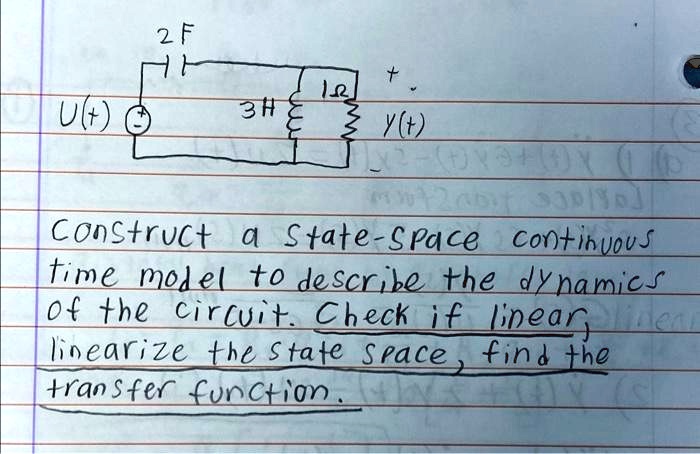 2 F
+
1Ω
U(t)
+
-
3H
Y(t)
-
Construct a State-Space continuous
time model to describe the dynamics
of the circuit. Check if linear,
linearize the state space, find the
transfer function.